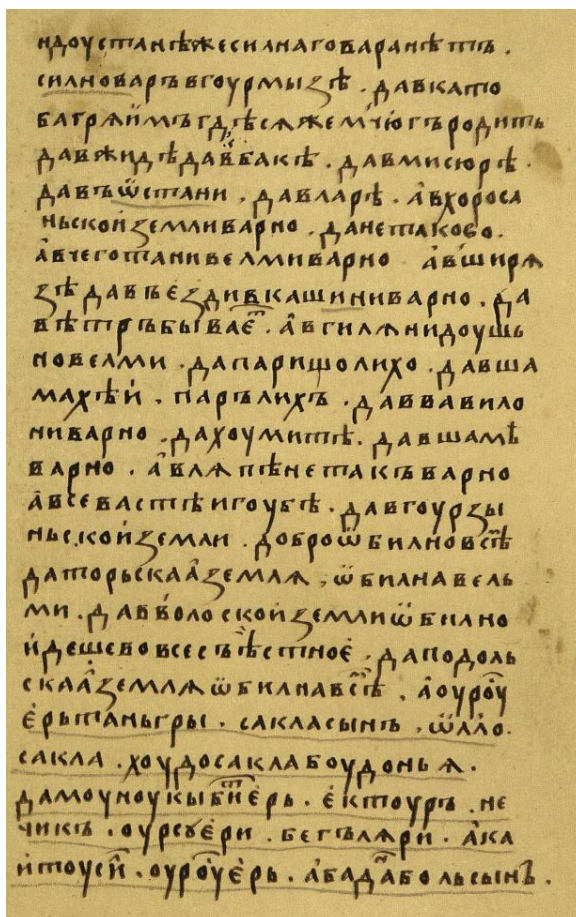 ндоустанѣжесилнаговаранѣтъ.
силноваръвгоурмызѣ. давкато
багряимъгдѣсѧжемчюгъродить
давжидѣдавбакѣ. давмисюрѣ.
давъѡстани. давларѣ. авхороса
ньскойземливарно. данетаково.
авчеготаниве­лмиварно авширѧ
зѣдавъездивкашиниварно. да
вѣтръбываеⷮ. авгилѧнидоушь
новелми. дапаришолихо. давша
махѣй. парълихъ. даввавило
ниварно. дахоумитѣ. давшамѣ
варно. авлѧпѣнетакъварно
авсевастѣигоубѣ. давгоурзы
ньскойземли. доброѡбилновсⷨѣ
даторьскааземлѧ, ѡбилнавель
ми. давволоскойземлиѡбилно
идешевовсесъѣстное. даподоль
скааземлѧѡбилнавсⷨѣ. аоуроⷭу
ерьтаньгры. сакласынъ. ѡлло.
сакла. хоудосаклабоудоньꙗ.
дамоуноукыбⷮиерь. ектоуръ. не
чикъ. оурсꙋери. бегълѧри. ака
итоусиⷤ. оуроⷭуерь. абадаⷩабольсынъ.